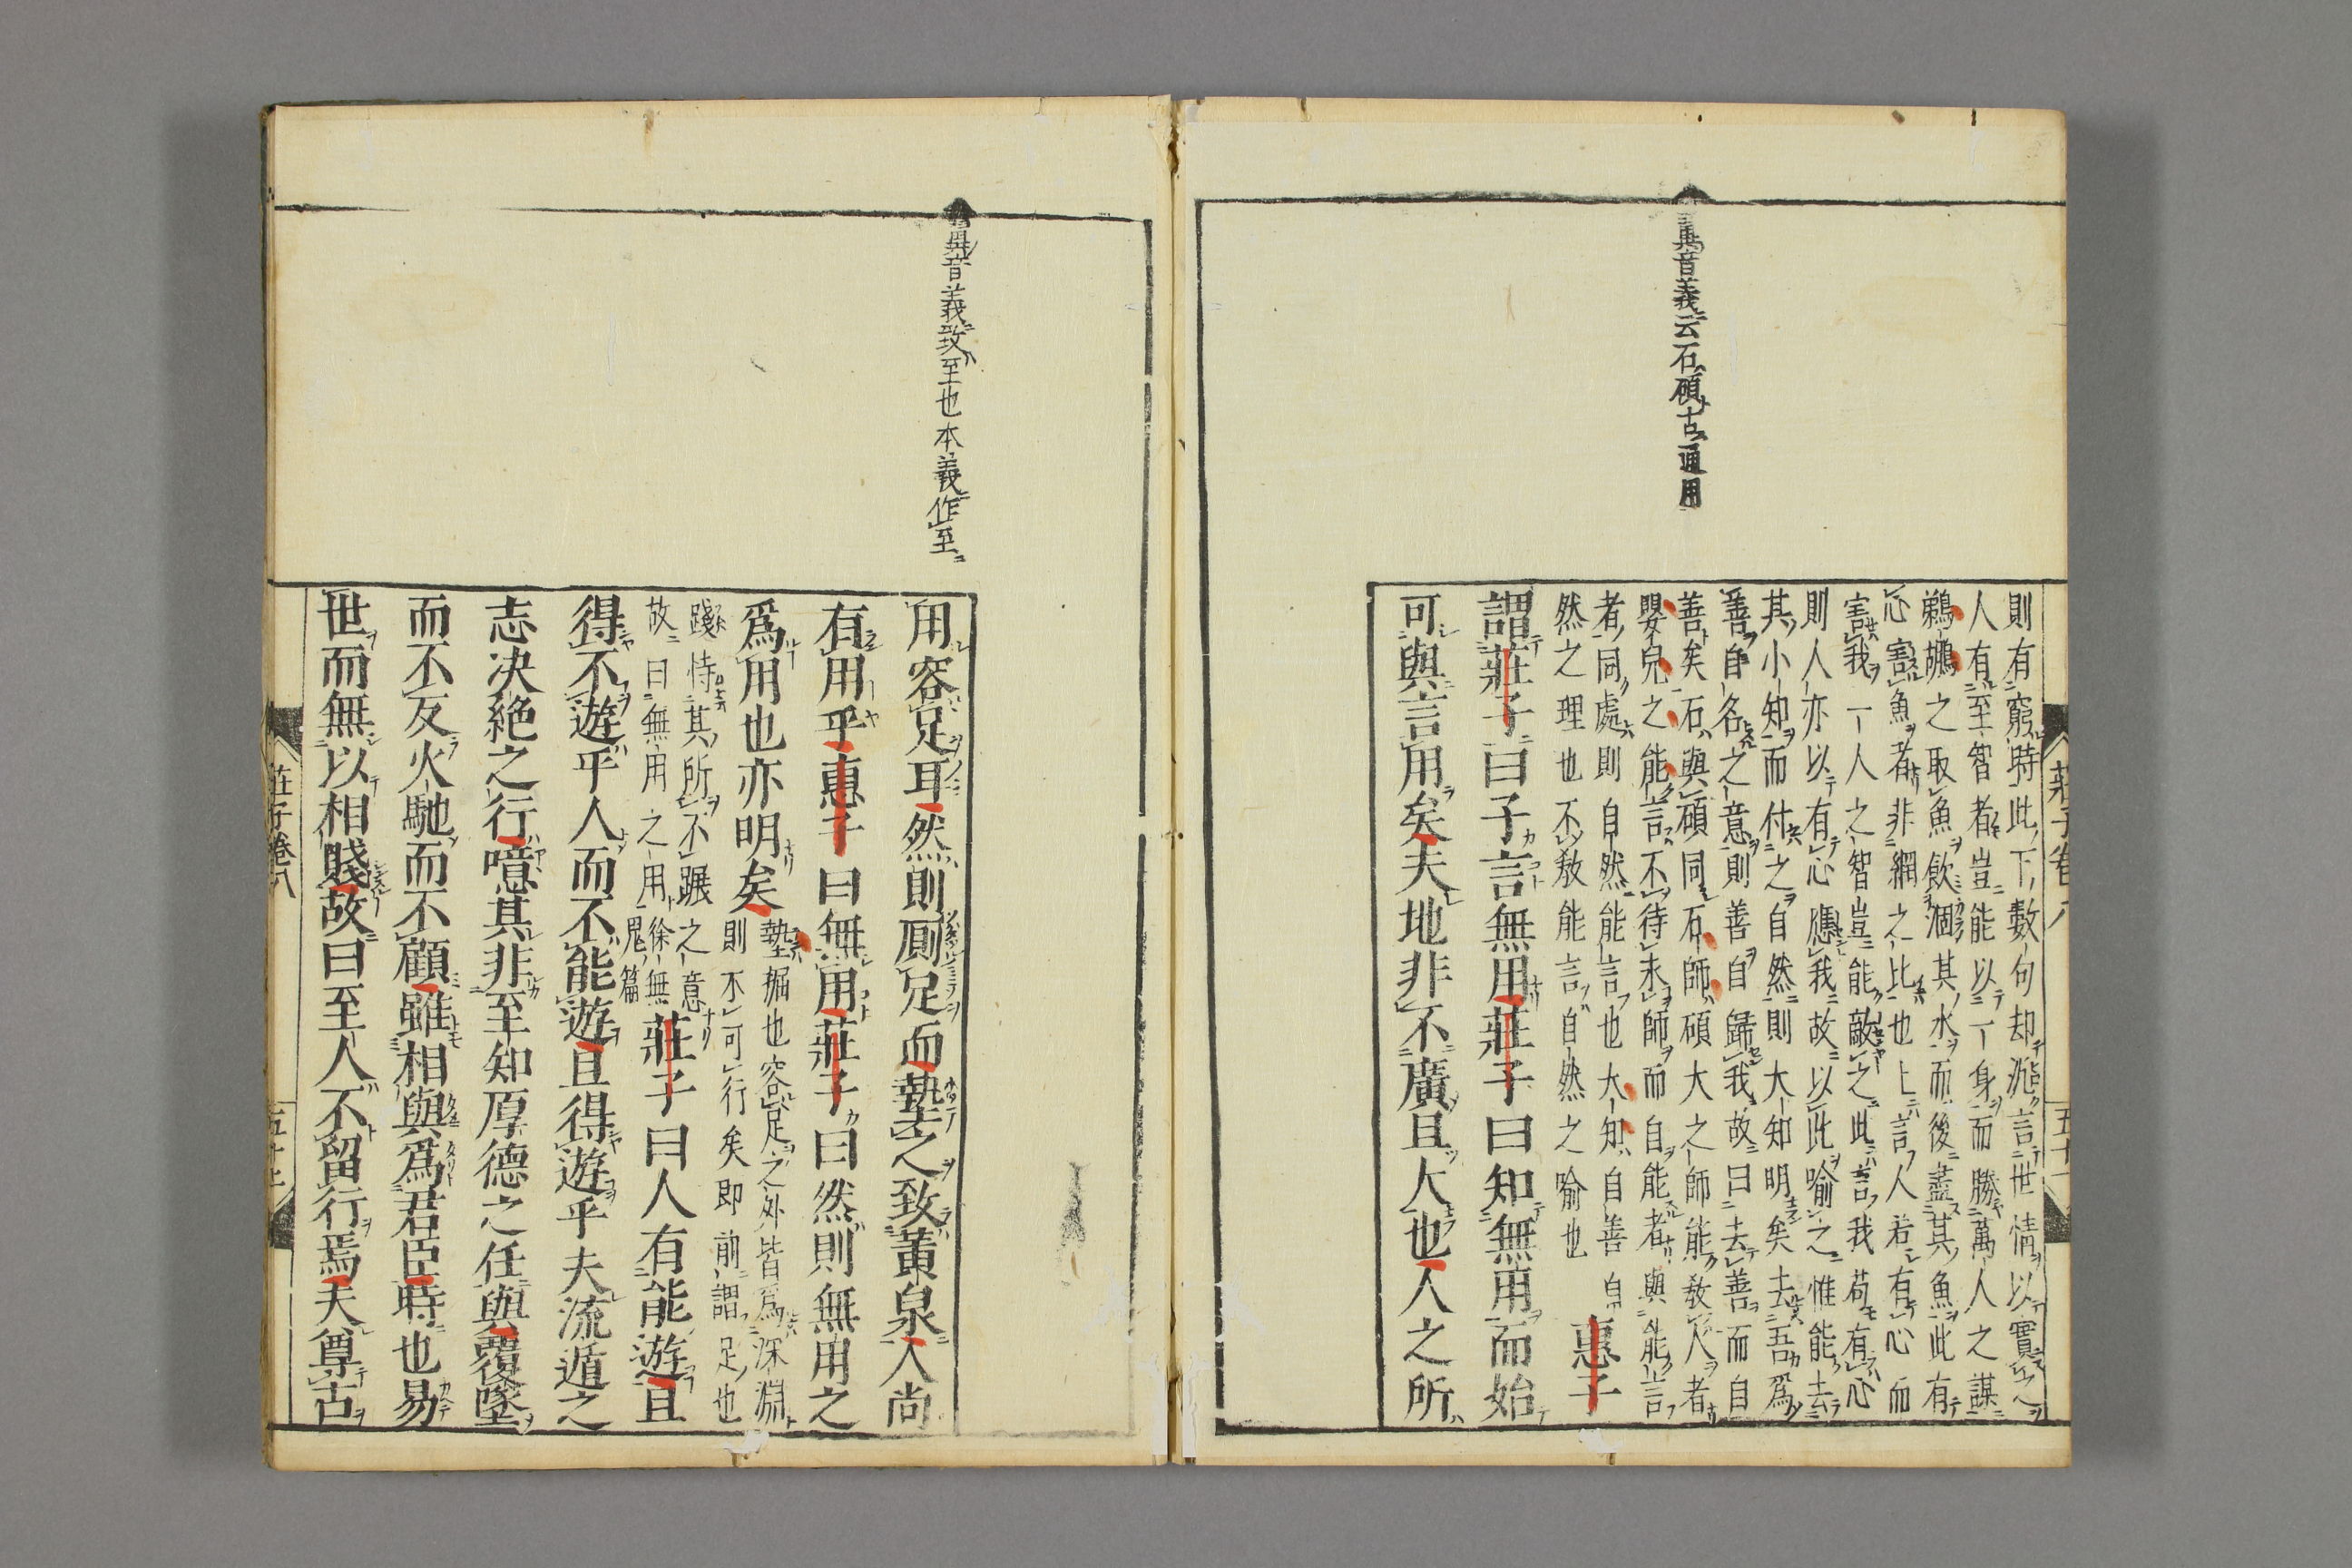 音義云石碩古通用
則有窮時此下數句却泚言世情以實之
人有至智者豈能以一身而勝萬人之謀
鵜鶘之取魚飲涸其水而後盡其魚此有
心害魚者非網之比也上言人若有心而
害我一人之智豈能敵之此言我苟有心
則人亦以有心應我故以此喻之惟能去
其小知而付之自然則大知明矣去吾為
善自名之意則善自歸我故曰去善而自
善矣石與碩同石師碩大之師能教人者
嬰兒之能言不待求師而自能者與能言
者同處則自然能言也大知自善自
然之理也不教能言自然之喻也 惠子
謂莊子曰子言無用莊子曰知無用而始
可與言用矣夫地非不廣且大也人之所
莊子卷八
音義致至也本義作至
用容足耳然則廁足而墊之致黃泉人尚
有用乎惠子曰無用莊子曰然則無用之
為用也亦明矣 墊掘也容足之外皆為深淵
則不可行矣即前謂足也
踐恃其所不蹍之意
故曰無用之用徐無鬼篇
莊子曰人有能遊且
得不遊乎人而不能遊且得遊乎夫流遁之
志決絕之行噫其非至知厚德之任與覆墜
而不反火馳而不顧雖相與為君臣時也易
世而無以相賤故曰至人不留行焉夫尊古
莊子卷八